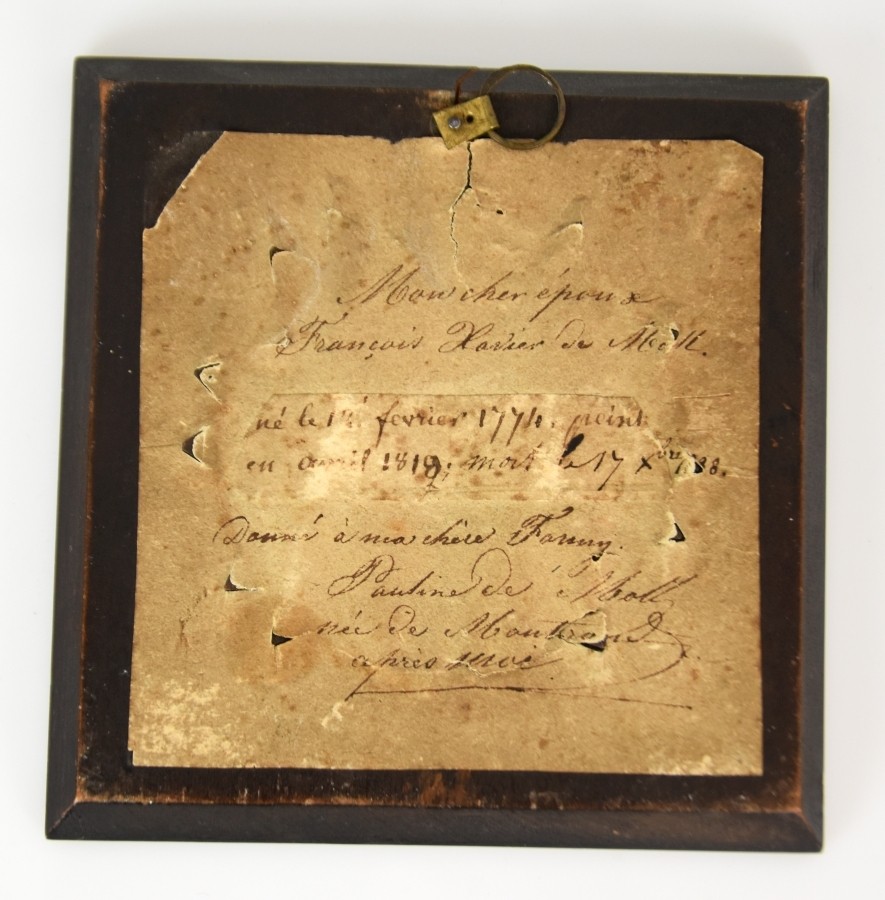 Mon cher époux
François Xavier de Moll.
né le fevrier 1774. peint
en avril 1819; mort le 17 xbre
Donné à ma chère Fanny.
Pauline de Moll
née de Montrond
après moi